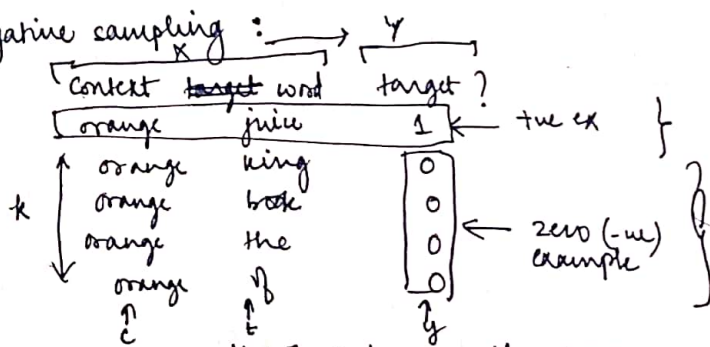 gative sampling : → y
x
context target word target ?
orange juice 1 ← +ve ex
k orange king 0
orange book 0
orange the 0 ← zero (-ve)
example
orange of 0
c t y